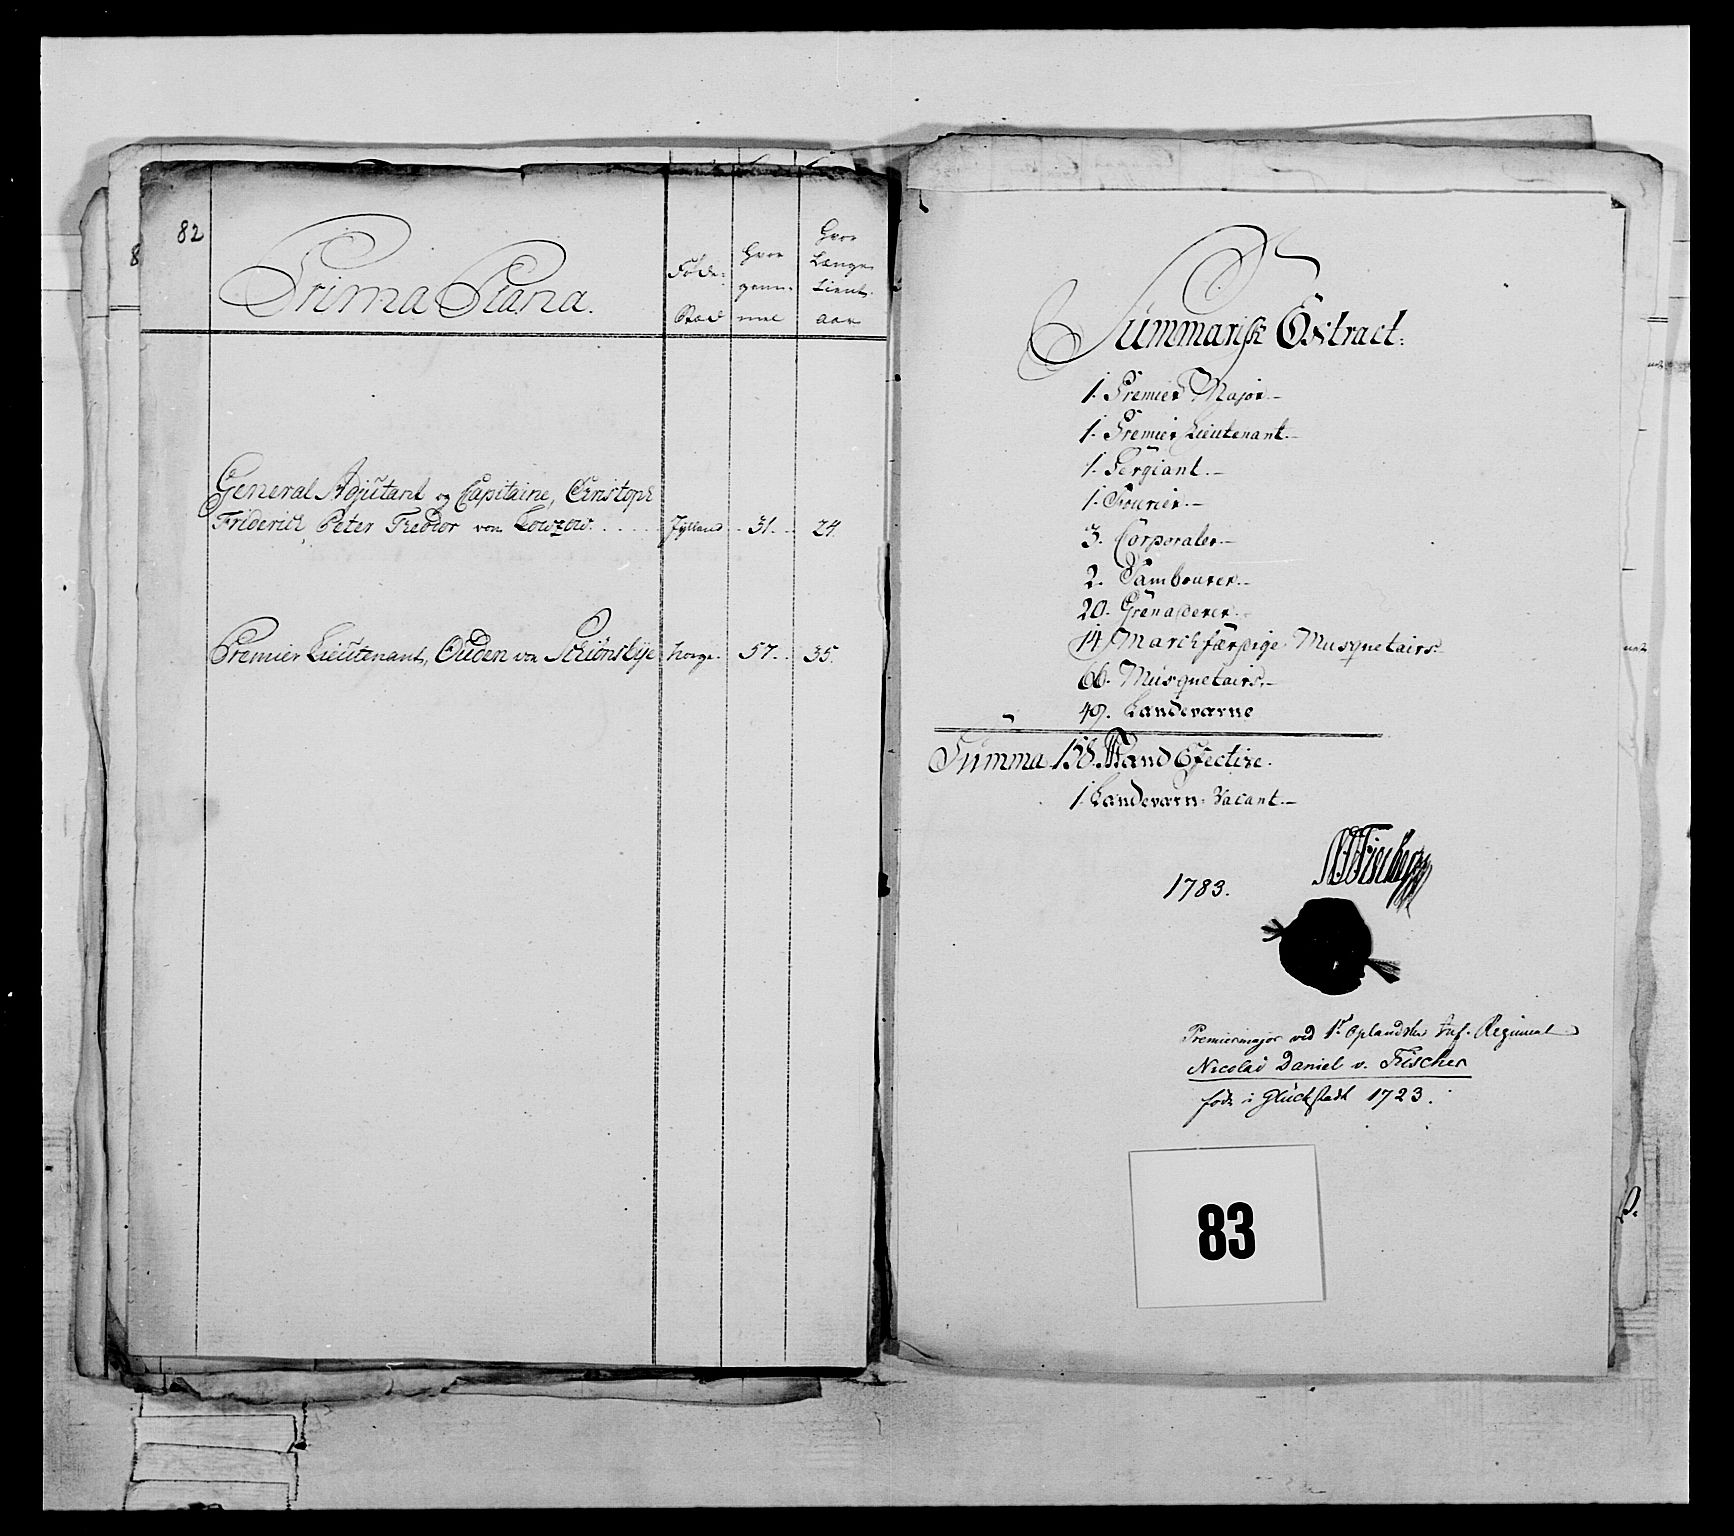 82
Prima Plana.
Føde-
Stæd
Hvor
gam-
mel
Hvor
Længe
tient.
aar
General Adjutant og Capitaine, Christoph
Friderich Peter Theodor von Lowzow. Jylland 31. 24.
Premier Lieutenant, Ouden von Schiønslye Norge. 57. 35.
Summarisk Extract:
1. Premier Major.
1. Premier Lieutenant.
1. Sergiant.
1. Fourier.
3. Corporaler.
2. Tambourer.
20. Grenaderer.
14. Marchfærdige Musquetairs.
66. Musquetairs.
49. Landeværne
Summa 158. Mand Efective.
1. Landeværn: Vacant.
NDFischer
1783.
Premiermajor ved 1ste Oplandske Inf. Regiment
Nicolai Daniel v. Fischer
føde i Glückstadt 1723.
83